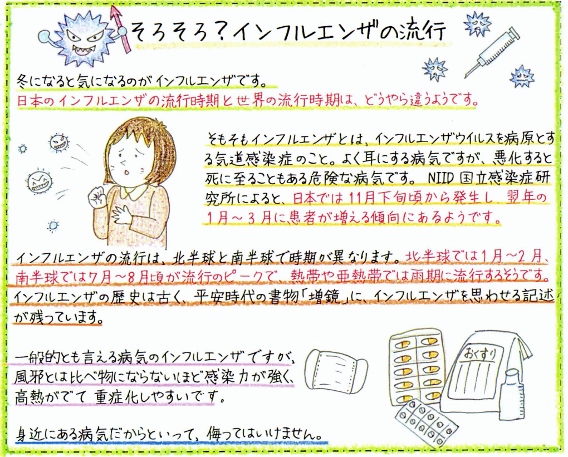 そろそろ？インフルエンザの流行
冬になると気になるのがインフルエンザです。
日本のインフルエンザの流行時期と世界の流行時期は、どうやら違うようです。
そもそもインフルエンザとは、インフルエンザウイルスを病原とす
る気道感染症のこと。よく耳にする病気ですが、悪化すると
死に至ることもある危険な病気です。 NIID 国立感染症研
究所によると、日本では11月下旬頃から発生し、翌年の
1月～3月に患者が増える傾向にあるようです。
インフルエンザの流行は、北半球と南半球で時期が異なります。北半球では1月～2月、
南半球では7月～8月頃が流行のピークで、熱帯や亜熱帯では雨期に流行するそうです。
インフルエンザの歴史は古く、平安時代の書物「増鏡」に、インフルエンザを思わせる記述
が残っています。
一般的とも言える病気のインフルエンザですが、
風邪とは比べ物にならないほど感染力が強く、
高熱がでて重症化しやすいです。
身近にある病気だからといって、侮ってはいけません。
おくすり